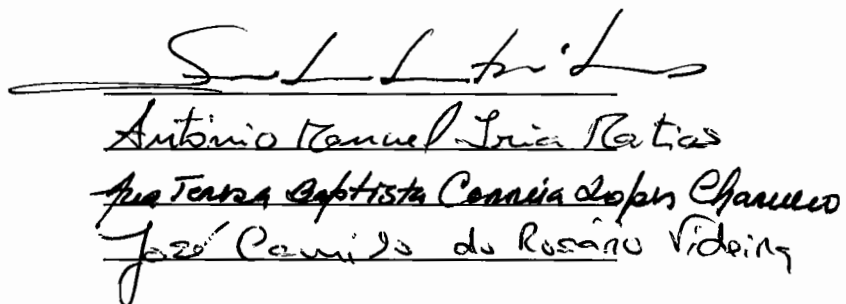 António Manuel Iria Matias
Ana Teresa Baptista Correia Lopes Charneco
José Camilo do Rosário Videira